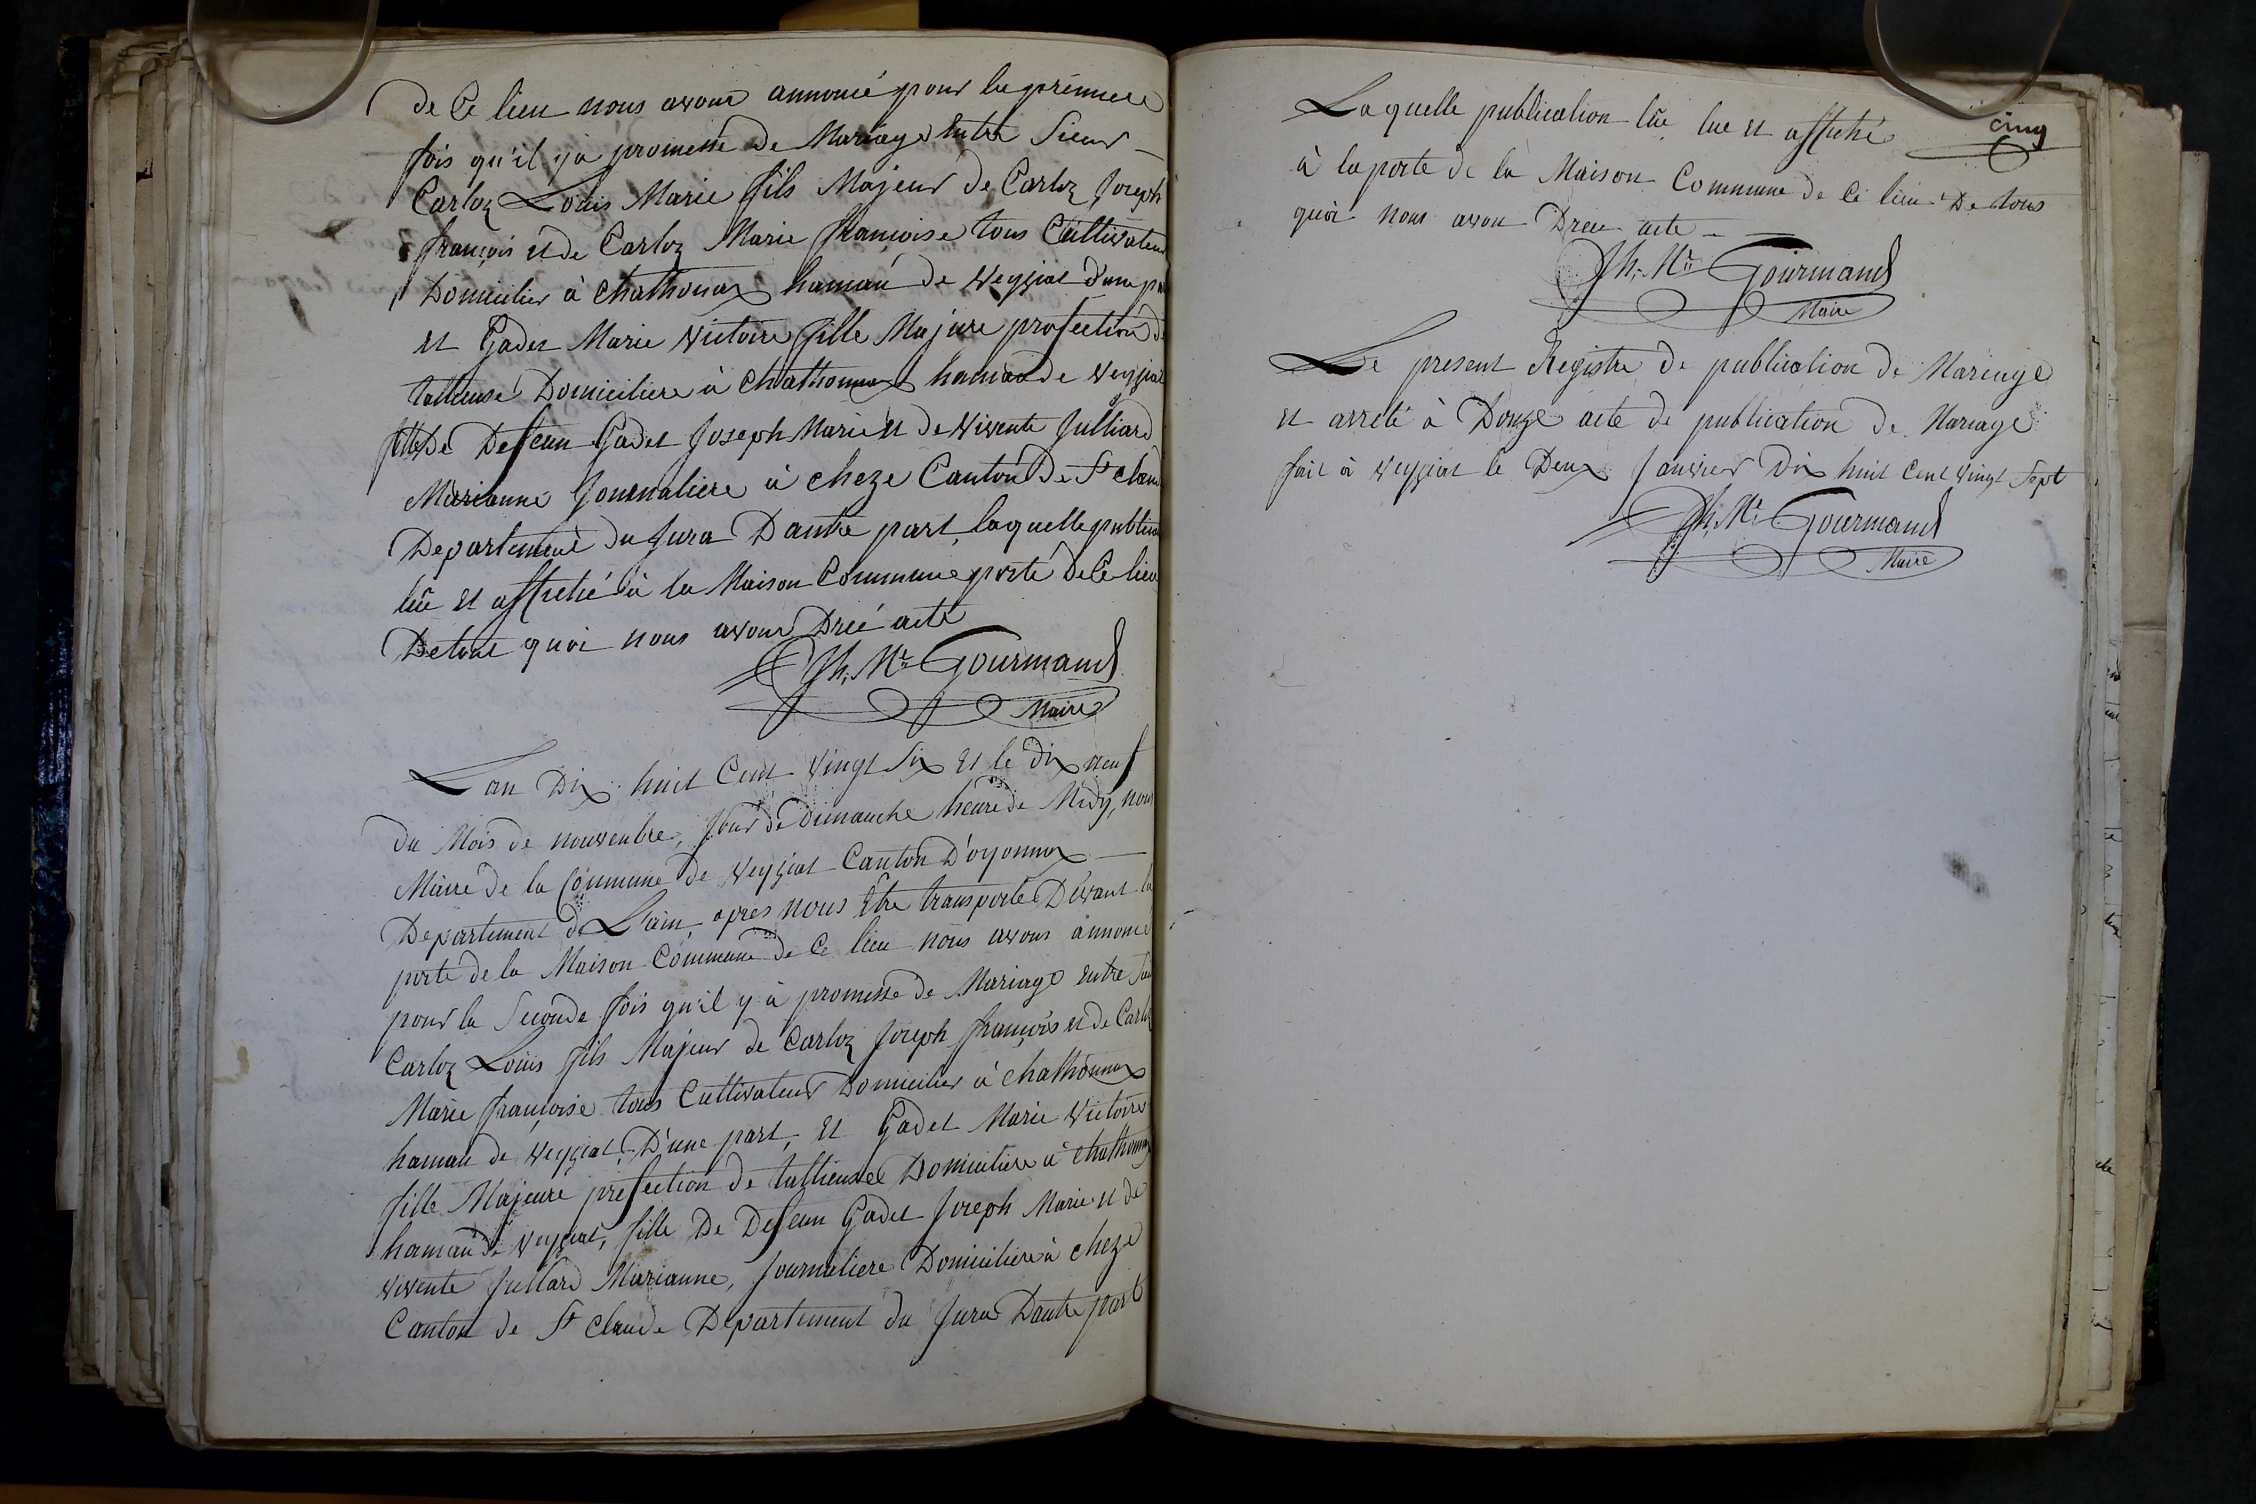 de Ce lieu nous avons annoncé pour la premiere
fois qu'il y a promesse de Mariage Entre Sieur
Carloz Louis Marie fils Majeur de Carloz Joseph
françois et de Carloz Marie françoise tous Cultivateur
Domicilier à Chathonax hamau de Veyziat d'une
et Gadet Marie Victoire fille Majure profection
tallieuse Domiciliere à Chathonnax hamau de Veyziat
fille De Defeun Gadet Joseph Marie et de Vivente Julliard
Marianne Journaliere à cheze Canton De St
Departement du Jura Dautre part, laquelle
lûe et affiché à la Maison Commune porte De Ce lieu
De tout quoi nous avons Dreé acte
Jh. Mie Gourmand
Maire
Lan Dix huit Cent Vingt Six et le Dix neuf
du Mois de nouvenbre, Jour de dimanche heure de Midy, nous
Maire de la Commune de Veyziat Canton D'oyonnax
Departement de Lain, apres nous Etre transporté Devant la
porte de la Maison Commune de Ce lieu nous avons annoncé
pour la Seconde fois qu'il y à promesse de Mariage Entre
Carloz Louis fils Majeur de Carloz Joseph françois et de Carloz
Marie françoise tous Cultivateur Domicilier à Chathonnax
hamau de Veyziat D'une part, et Gadet Marie Victoire
fille Majeure profection de tallieuse Domiciliere à Chathonnax
hamau de Veyziat, fille De Defeun Gadet Joseph Marie et de
vivente Jullard Marianne, Journaliere Domiciliere à Cheze
Canton de St Claude Departement du Jura Dautre part
cinq
Laquelle publication lûe lue et affiché
à la porte de la Maison Commune de Ce lieu De tous
quoi nous avon Dreée acte
Jh. Mie Gourmand
Maire
Le present Registre de publication de Mariage
et arreté à Douze acte de publication de Mariage
fait à Veyziat le Deux Janvier Dix huit Cent Vingt Sept
Jh. Mie Gourmand
Maire